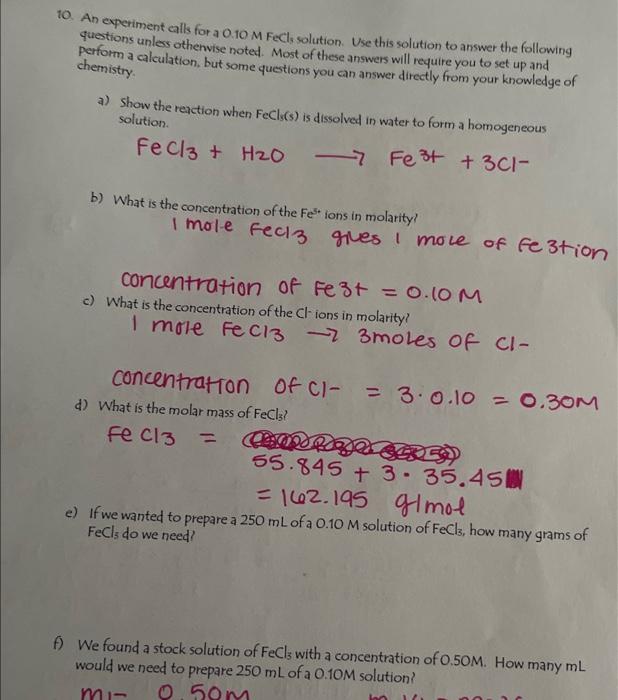 10. An experiment calls for a 0.10 M FeCl₃ solution. Use this solution to answer the following
questions unless otherwise noted. Most of these answers will require you to set up and
perform a calculation, but some questions you can answer directly from your knowledge of
chemistry.
a) Show the reaction when FeCl₃(s) is dissolved in water to form a homogeneous
solution.
FeCl3 + H2O → Fe3+ + 3Cl-
b) What is the concentration of the Fe³⁺ ions in molarity?
1 mole FeCl3 gives 1 mole of Fe3+ion
concentration of Fe3+ = 0.10M
c) What is the concentration of the Cl⁻ ions in molarity?
1 mole FeCl3 → 3moles of Cl-
concentration of Cl- = 3·0.10 = 0.30M
d) What is the molar mass of FeCl₃?
FeCl3 =
55.845 + 3·35.45
= 162.195 g/mol
e) If we wanted to prepare a 250 mL of a 0.10 M solution of FeCl₃, how many grams of
FeCl₃ do we need?
f) We found a stock solution of FeCl₃ with a concentration of 0.50M. How many mL
would we need to prepare 250 mL of a 0.10M solution?
m1- 0.50M